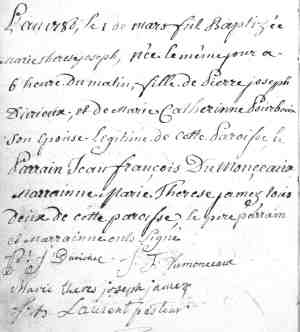 L'an 1786, le 1 de mars fut Baptizée
Marie therese joseph, née le même jour a
6 heure du matin, fille de Pierre joseph
et de Marie Catherinne Bourbois
Son épouse legitime de cette Paroisse le
Parrain Jean françois Dumonceau
Marrainne Marie Therese jamez tous
Deux de cette paroisse le pere parrain
et Marrainne onts Signé
P: J J: F Dumonceau
Marie theres joseph jamez
Laurent pasteur